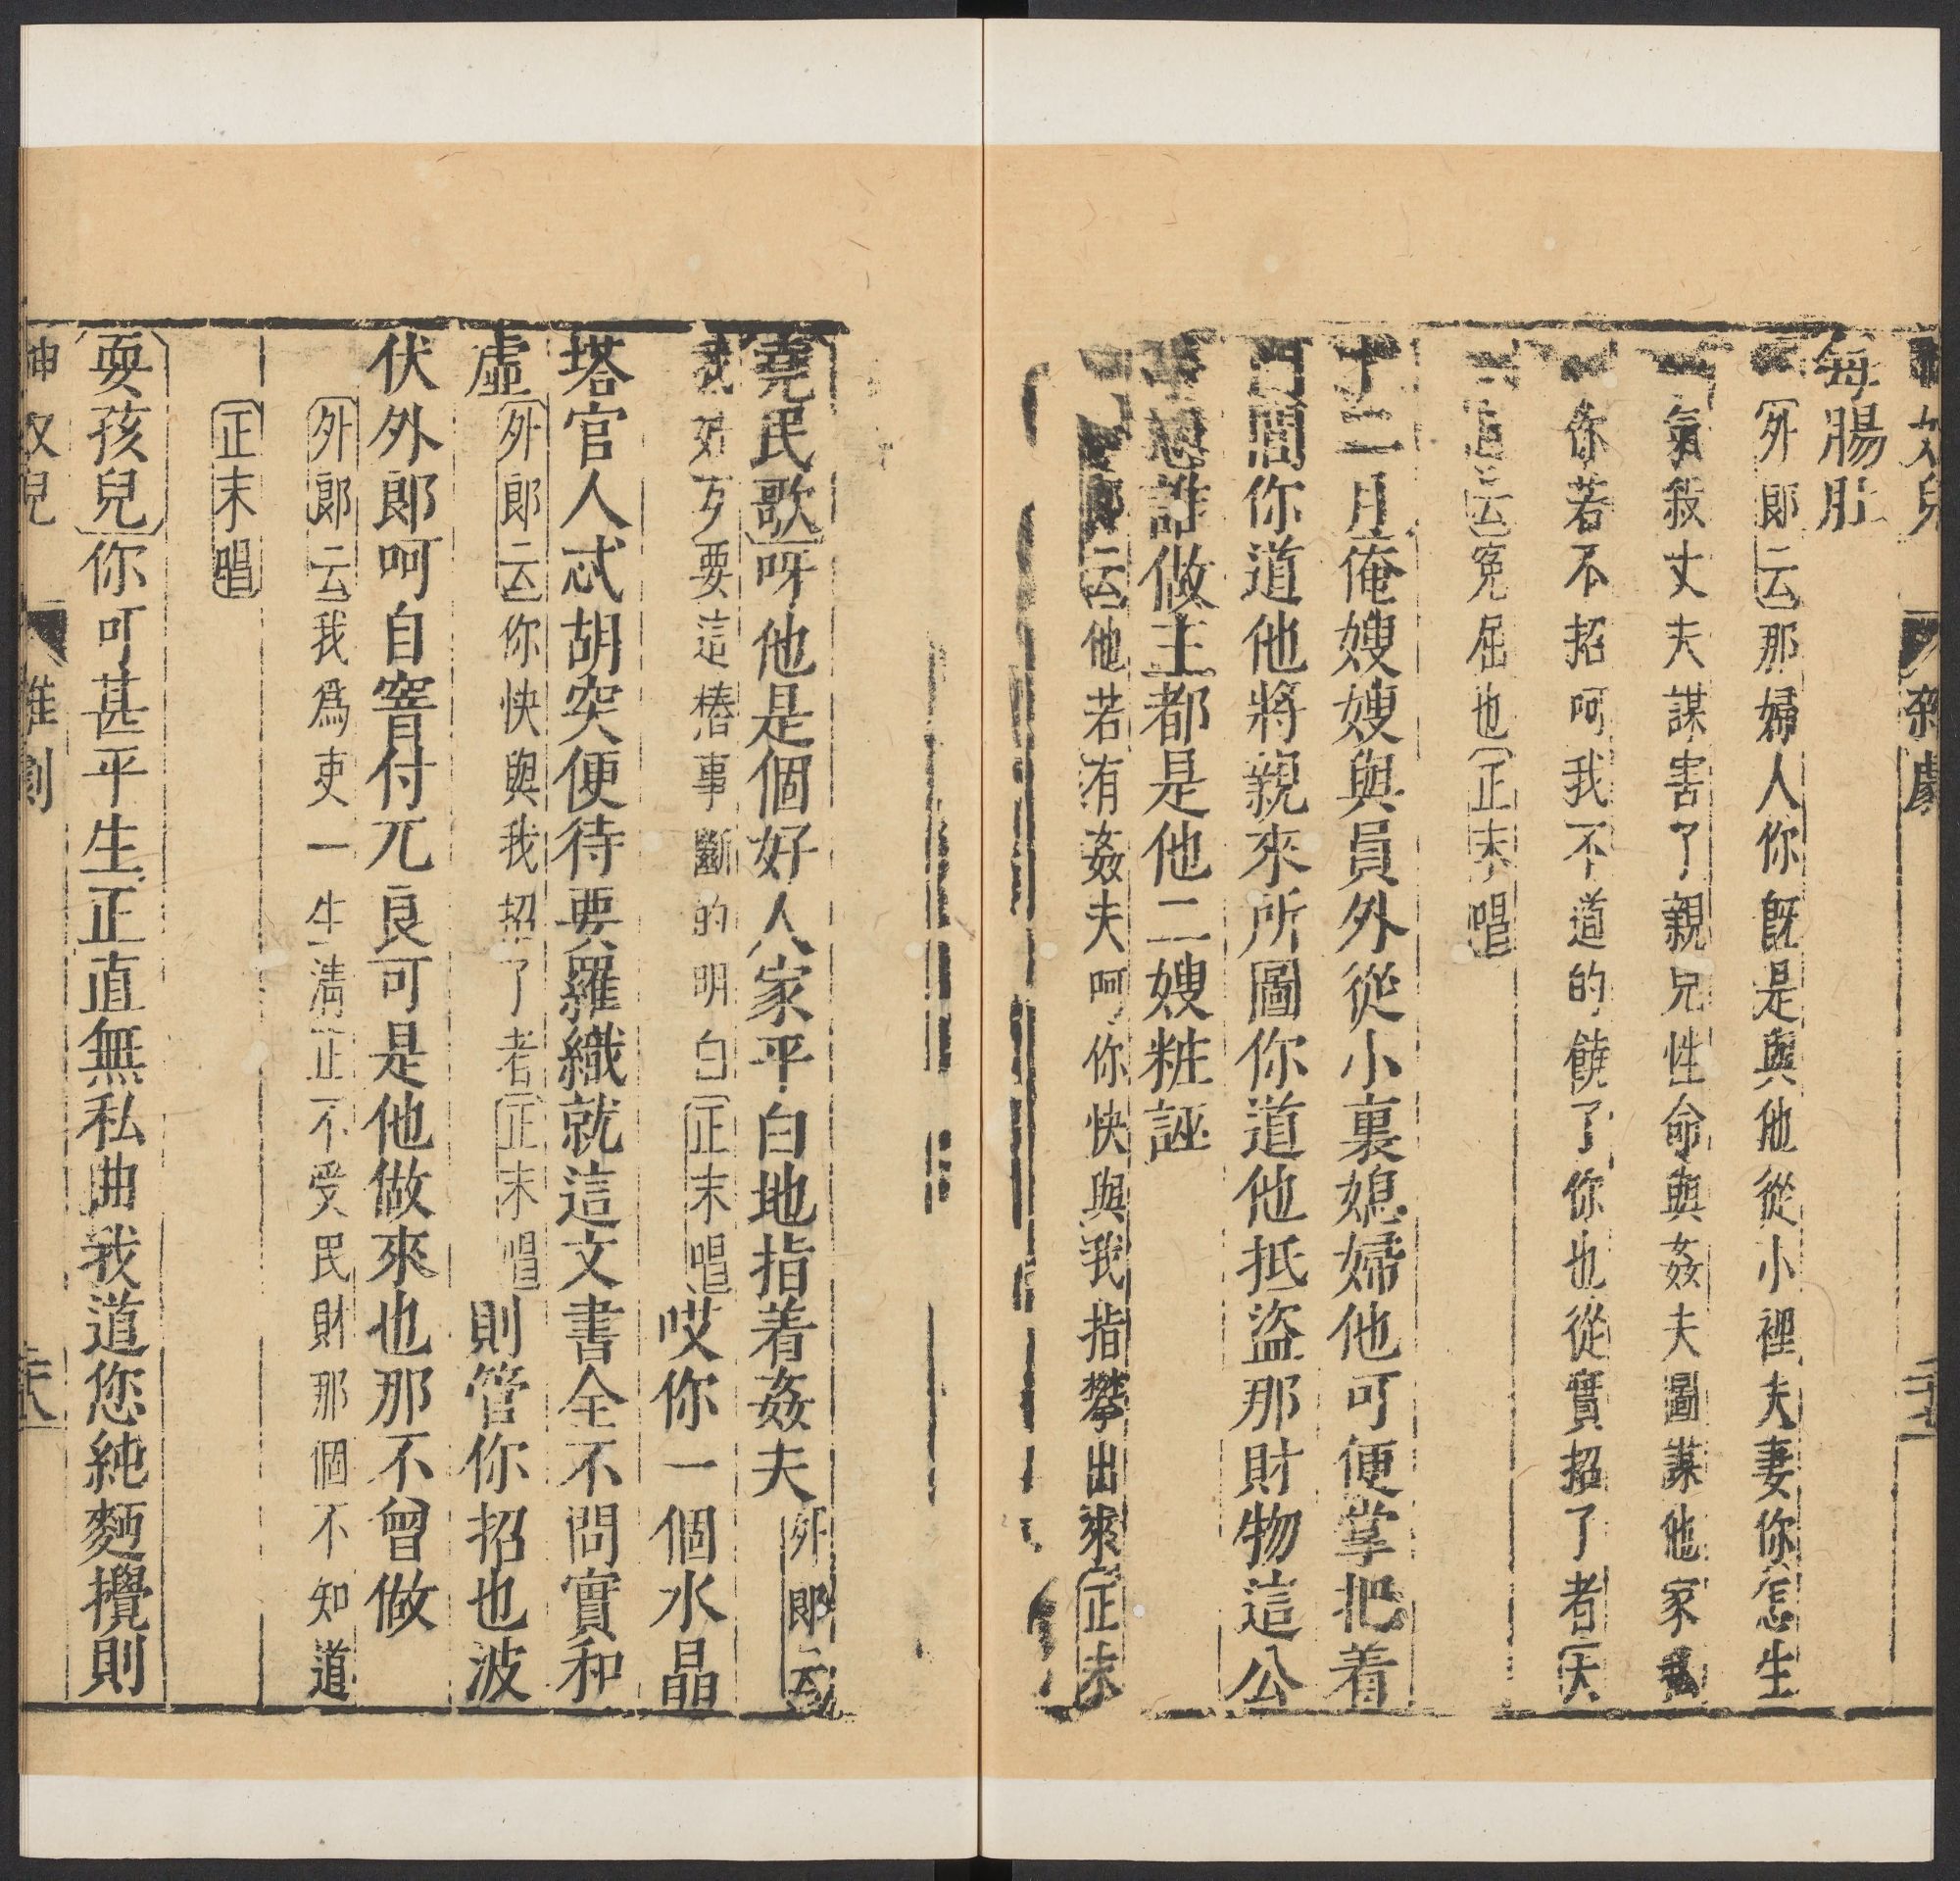 女兒 雜劇 二十七
每腸肚
外郎云那婦人你既是與他從小裡夫妻你怎生
氣殺丈夫謀害了親兄性命與姦夫圖謀他家私
你若不招呵我不道的饒了你也從實招了者大
旦云冤屈也正末唱
十二月俺嫂嫂與員外從小裏媳婦他可便掌把着
門閭你道他將親來所圖你道他抵盜那財物這公
事憑誰做主都是他二嫂粧誣
郎云他若有姦夫呵你快與我指攀出來正末
堯民歌呀他是個好人家平白地指着姦夫外郎云
我好歹要這樁事斷的明白正末唱哎你一個水晶
塔官人忒胡突便待要羅織就這文書全不問實和
虛外郎云你快與我招了者正末唱則管你招也波
伏外郎呵自窨付兀良可是他做來也那不曾做
外郎云我爲吏一生清正不受民財那個不知道
正末唱
耍孩兒你可甚平生正直無私曲我道您純麵攪則
神奴兒 雜劇 二十八